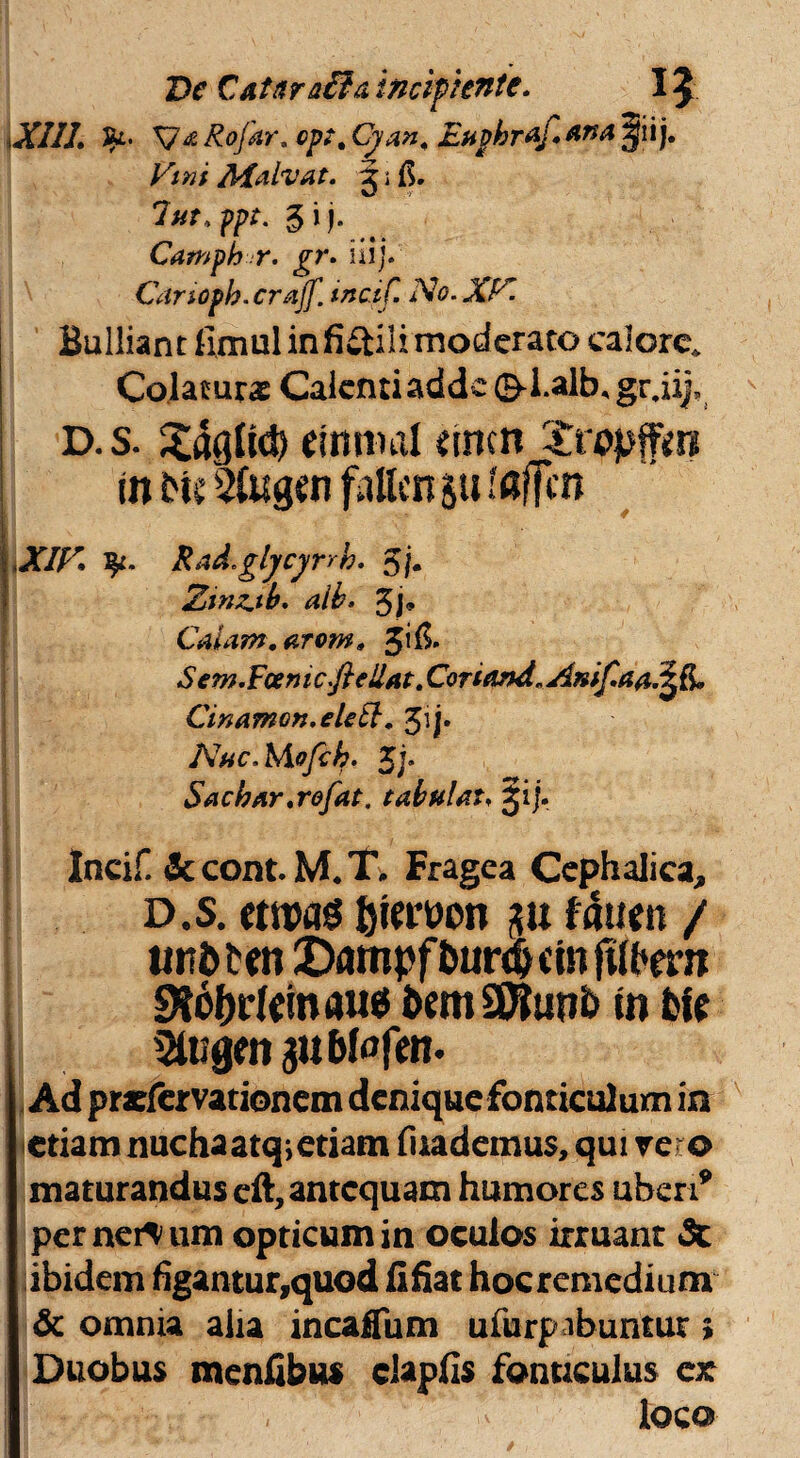 De Cataracta incipiente. 13
XIII. ℞. 🜄 æ Rosar. opt. Cyan. Euphras. ana ℥iij.
Vini Malvat. ℥i ß.
Tut. ppt. ʒij.
Camphor. gr. iiij.
Carioph. crass. incis. No. XV.
Bulliant simul in fictili moderato calore.
Colaturæ Calenti adde ⊕l. alb. gr. iij.
D. S. Täglich einmal einen Tropffen
in die Augen fallen zu lassen
XIV. ℞. Rad. glycyrrh. ʒj.
Zinzib. alb. ʒj.
Calam. arom. ʒiß.
Sem. Fœnic. stellat. Coriand. Anis. aa. ℥ß.
Cinamon. elect. ʒij.
Nuc. Mosch. ʒj.
Sachar. rosat. tabulat. ℥ij.
Incis. & cont. M. T. Fragea Cephalica,
D. S. etwas hiervon zu käuen /
und den Dampf durch ein silbern
Röhrlein aus dem Mund in die
Augen zu blasen.
Ad præservationem denique fonticulum in
etiam nucha atq; etiam suademus, qui vero
maturandus est, antequam humores uberi9
per nervum opticum in oculos irruant &
ibidem figantur, quod si fiat hoc remedium
& omnia alia incassum usurpabuntur;
Duobus mensibus elapsis fonticulus ex
loco